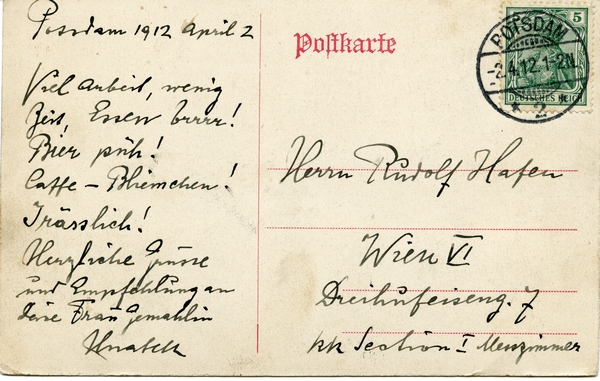 Potsdam 1912 April 2
Viel Arbeit, wenig
Zeit, Essen brrrr!
Bier püh!
Caffe – Bliemchen!
Grässlich!
Herzliche Grüsse
und Empfehlung an
deine Frau Gemahlin
Postkarte
5
POTSDAM
-2.4.12.1-2N
* 2
DEUTSCHES REICH
Herrn Rudolf Hafen
Wien VI
Dreihufeiseng. 7
kk Section I